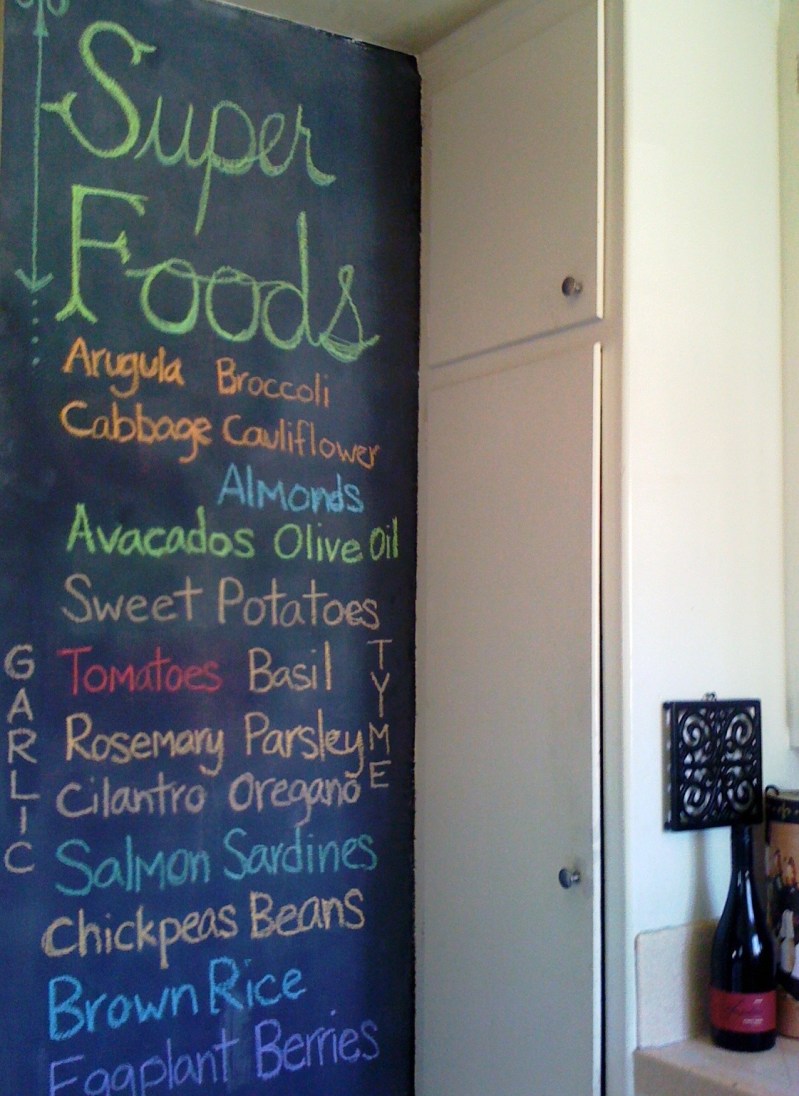 Super
Foods
Arugula Broccoli
Cabbage Cauliflower
Almonds
Avacados Olive Oil
Sweet Potatoes
GARLIC
Tomatoes Basil
TYME
Rosemary Parsley
Cilantro Oregano
Salmon Sardines
Chickpeas Beans
Brown Rice
Eggplant Berries